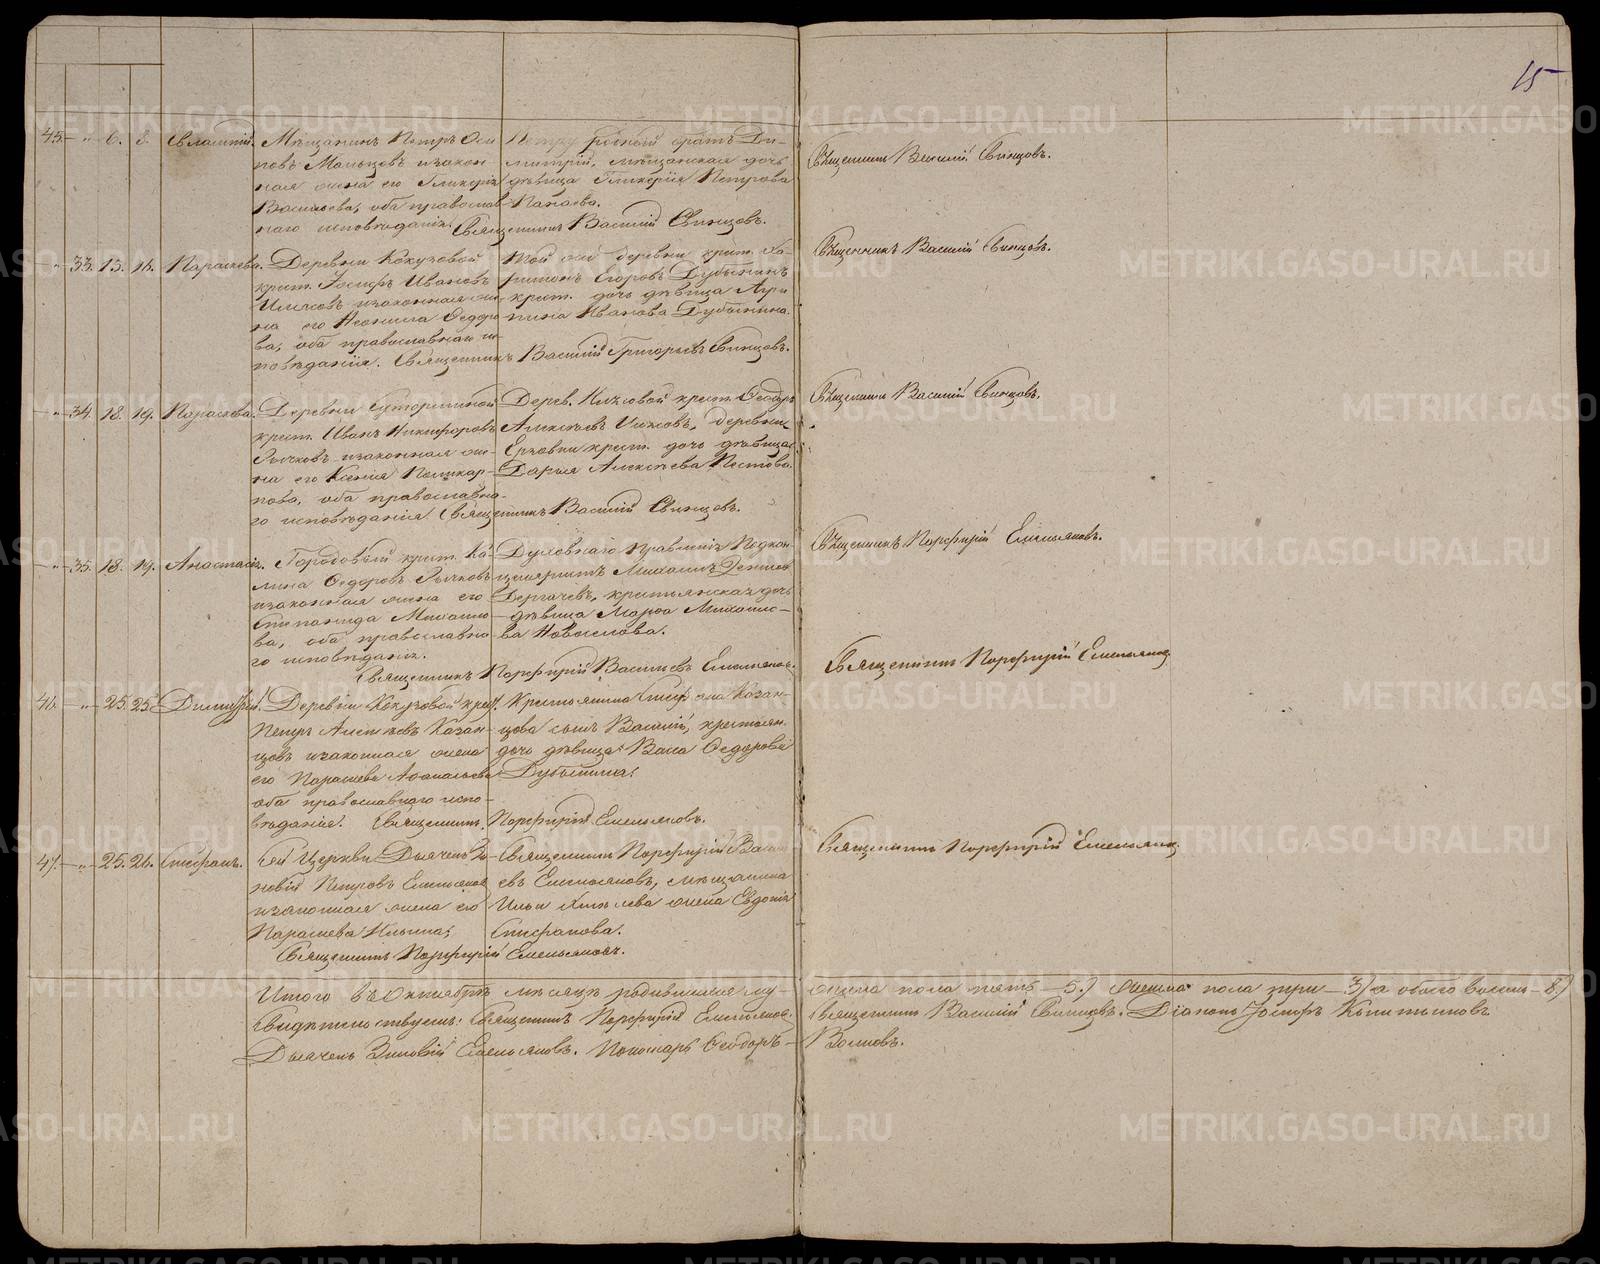 15
45. — „ — 6. 8. Евлампий.
Мѣщанинъ Петръ Оси-
повъ Мальцевъ и закон-
ная жена его Гликерія
Васильева, оба православ-
наго исповѣданія.
Петру родной братъ Ди-
митрій, мѣщанская дочь
дѣвица Гликерія Петрова
Панаева.
Священникъ Василій Свинцовъ.
Священникъ Василій Свинцовъ.
„ — 33. 13. 16. Параскева.
Деревни Кокузовой
крест. Іосифъ Ивановъ
и законная же-
на его Неонила Ѳедоро-
ва, оба православнаго ис-
повѣданія.
Той же деревни крест. Ха-
ритонъ Егоровъ Дубынинъ
крест. дочь дѣвица Агри-
пина Иванова Дубынина.
Священникъ Василій Григорьевъ Свинцовъ.
Священникъ Василій Свинцовъ.
„ — 34. 18. 19. Параскева.
Деревни
крест. Иванъ Никифоровъ
Рычковъ и законная же-
на его Ксенія Поликар-
пова, оба православна-
го исповѣданія.
Дерев. крест. Ѳеодоръ
Алексѣевъ деревни
крест. дочь дѣвица
Дарья Алексѣева Пестова.
Священникъ Василій Свинцовъ.
Священникъ Василій Свинцовъ.
„ — 35. 18. 19. Анастасія.
крест. Ка-
лина Ѳедоровъ Рычковъ
и законная жена его
Степанида Михайло-
ва, оба православна-
го исповѣданія.
Духовнаго Правленія
Михаилъ
крестьянская дочь
дѣвица Марѳа Михайло-
ва Новоселова.
Священникъ Порфирій Васильевъ Емельяновъ.
Священникъ Порфирій Емельяновъ.
46. — „ — 25. 25. Димитрій.
Деревни Кокузовой крест.
Петръ Алексѣевъ Казан-
цовъ и законная жена
его Параскева Аѳанасьева
оба православнаго испо-
вѣданія.
Крестьянина Казан-
цова сынъ Василій, крестьян.
дочь дѣвица Васса Ѳедорова
Дубынина.
Священникъ Порфирій Емельяновъ.
Священникъ Порфирій Емельяновъ
47. — „ — 25. 26. Стефанъ.
Сей Церкви Дьячекъ Зи-
новій Петровъ Емельяновъ
и законная жена его
Параскева Ильина,
Священникъ Порфирій Василь-
евъ Емельяновъ, мѣщанина
Ильи жена Евдокія
Стефанова.
Священникъ Порфирій Емельяновъ.
Священникъ Порфирій Емельяновъ
Итого въ Октябрѣ мѣсяцѣ родившихся му-жеска пола пять — 5.) женска пола три — 3) а обоего восемь — 8)
Свидѣтельствуемъ: Священникъ Порфирій Емельяновъ. Священникъ Василій Свинцовъ. Діаконъ Іосифъ
Дьячекъ Зиновій Емельяновъ. Пономарь Ѳеодоръ Волковъ.
METRIKI.GASO-URAL.RU